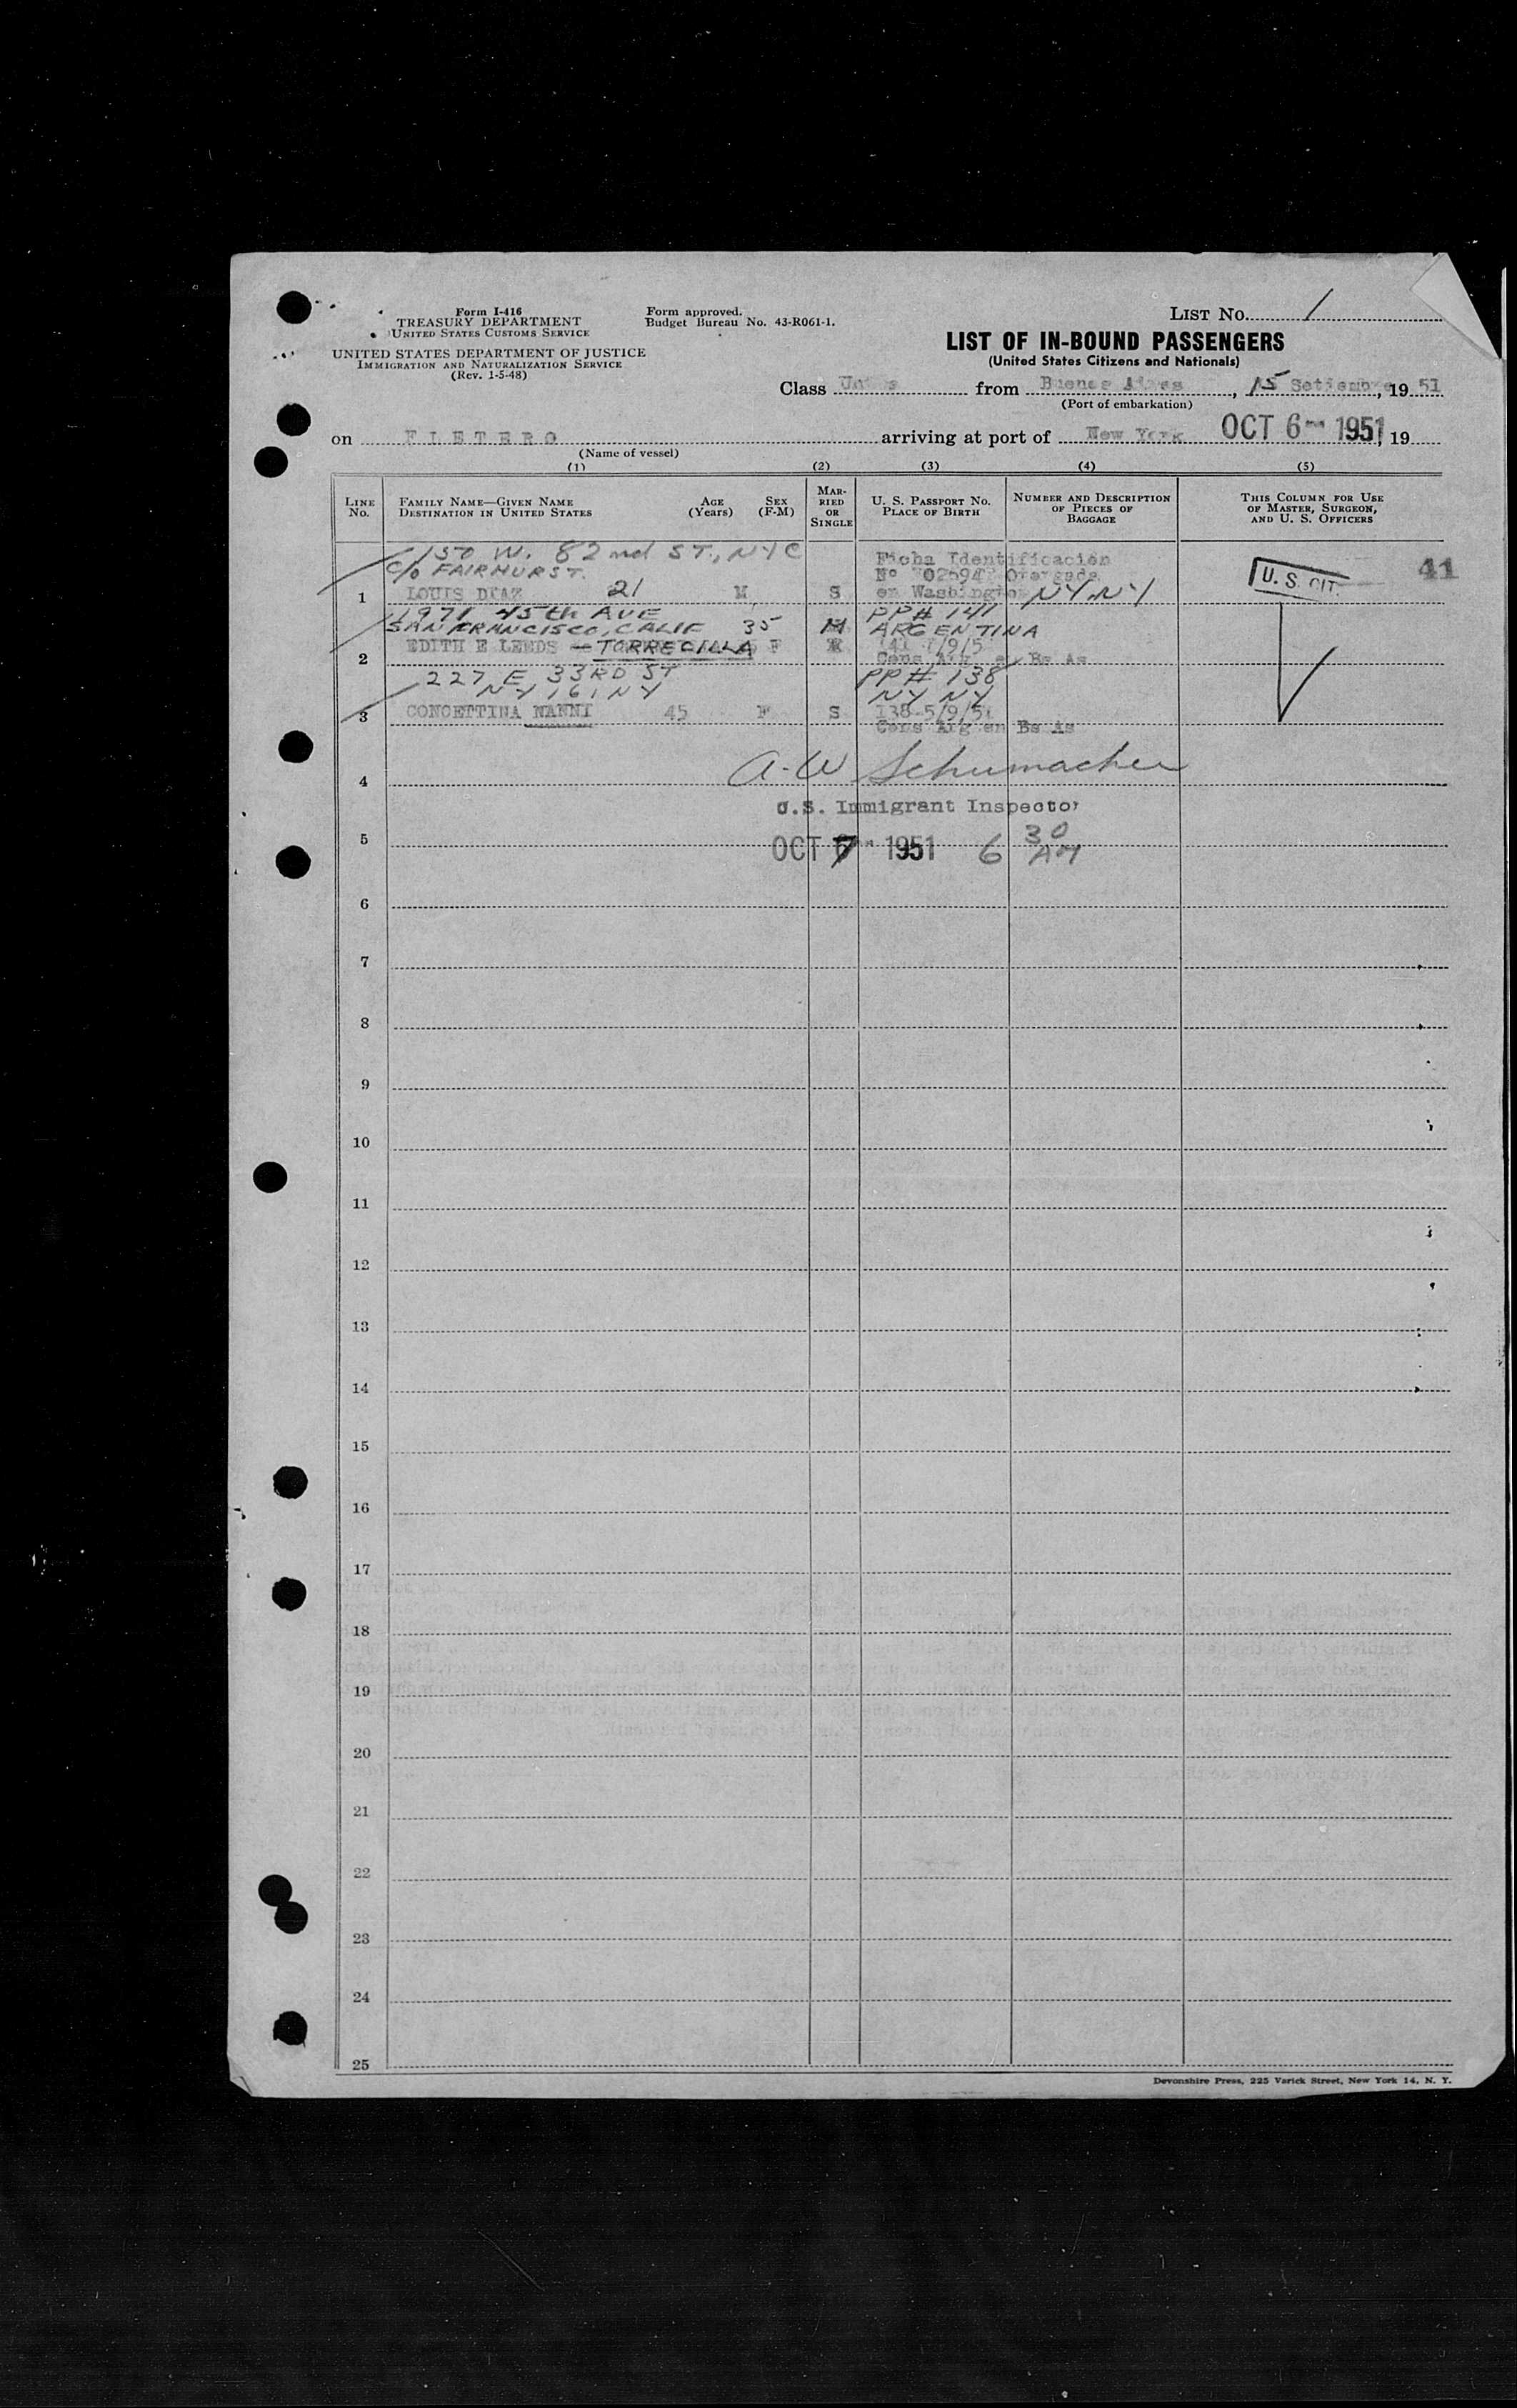 Form I-416
TREASURY DEPARTMENT
UNITED STATES CUSTOMS SERVICE
UNITED STATES DEPARTMENT OF JUSTICE
IMMIGRATION AND NATURALIZATION SERVICE
(Rev. 1-5-48)
Form approved.
Budget Bureau No. 43-R061-1.
LIST No. 1
LIST OF IN-BOUND PASSENGERS
(United States Citizens and Nationals)
Class from Buenos Aires, 15 Setiembre, 19 51
(Port of embarkation)
on FLETERO arriving at port of New York OCT 6 1951, 19
(Name of vessel)
(1) (2) (3) (4) (5)
LINE No.
FAMILY NAME—GIVEN NAME
DESTINATION IN UNITED STATES
AGE (Years)
SEX (F-M)
MARRIED OR SINGLE
U. S. PASSPORT No.
PLACE OF BIRTH
NUMBER AND DESCRIPTION OF PIECES OF BAGGAGE
THIS COLUMN FOR USE OF MASTER, SURGEON, AND U. S. OFFICERS
150 W. 82nd ST., NYC
C/O FAIRHURST.
Ficha Identificación
Nº Otorgada
1 LOUIS DIAZ 21 M S en Washington NY NY
U. S. CIT.
41
1971 45th AVE PP# 141
SAN FRANCISCO, CALIF 35 M ARGENTINA
2 EDITH E LEEDS — TORRECILLA F 141
Cons Arg en Bs As
227 E 33RD ST PP# 138
NY 16, NY NY NY
3 CONCETTINA NANNI 45 F S 138-5/9/51
Cons Arg en Bs As
4 A-W Schumacher
U.S. Immigrant Inspector
5 OCT 7 1951 6 30 AM
6
7
8
9
10
11
12
13
14
15
16
17
18
19
20
21
22
23
24
25
Devonshire Press, 225 Varick Street, New York 14, N. Y.